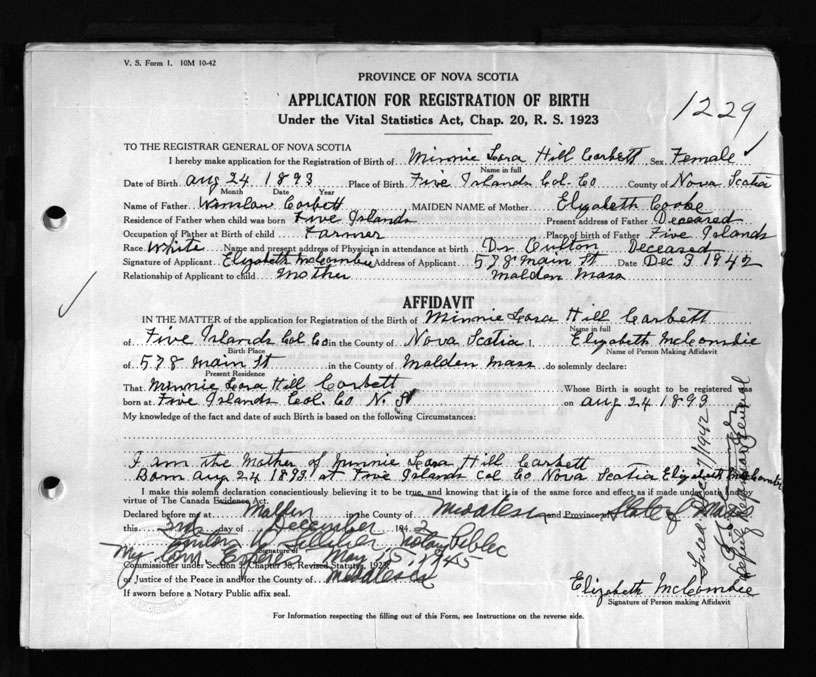 V. S. Form 1. 10M 10-42
PROVINCE OF NOVA SCOTIA
APPLICATION FOR REGISTRATION OF BIRTH
1229
Under the Vital Statistics Act, Chap. 20, R. S. 1923
TO THE REGISTRAR GENERAL OF NOVA SCOTIA
I hereby make application for the Registration of Birth of Minnie Lora Hill Corbett Sex Female
Name in full
Date of Birth Aug 24 1893 Place of Birth Five Islands Col. Co County of Nova Scotia
Month Date Year
Name of Father Winslow Corbett MAIDEN NAME of Mother Elizabeth Corbe
Residence of Father when child was born Five Islands Present address of Father Deceased
Occupation of Father at Birth of child Farmer Place of birth of Father Five Islands
Race White Name and present address of Physician in attendance at birth Dr Deceased
Signature of Applicant Elizabeth McCombie Address of Applicant 578 Main St Date Dec 3 1942
Relationship of Applicant to child Mother Malden Mass
AFFIDAVIT
IN THE MATTER of the application for Registration of the Birth of Minnie Lora Hill Corbett
Name in full
of Five Islands Col Co in the County of Nova Scotia I, Elizabeth McCombie
Birth Place Name of Person Making Affidavit
of 578 Main St in the County of Malden Mass do solemnly declare:
Present Residence
That Minnie Lora Hill Corbett Whose Birth is sought to be registered was
born at Five Islands Col. Co N. S on Aug 24 1893
My knowledge of the fact and date of such Birth is based on the following Circumstances:
I am the Mother of Minnie Lora Hill Corbett
Born Aug 24 1893 at Five Islands Col Co Nova Scotia Elizabeth McCombie
I make this solemn declaration conscientiously believing it to be true, and knowing that it is of the same force and effect as if made under oath and by
virtue of The Canada Evidence Act.
Declared before me at Malden in the County of Middlesex and Province of State of Mass
this 3rd day of December 1942
Notary Public
Signature of
My Com Expires May 15, 1945
Commissioner under Section 5, Chapter 38, Revised Statutes, 1923
or Justice of the Peace in and for the County of Middlesex
If sworn before a Notary Public affix seal.
Elizabeth McCombie
Signature of Person making Affidavit
For Information respecting the filling out of this Form, see Instructions on the reverse side.
Filed Dec 7/1942
Deputy Registrar General